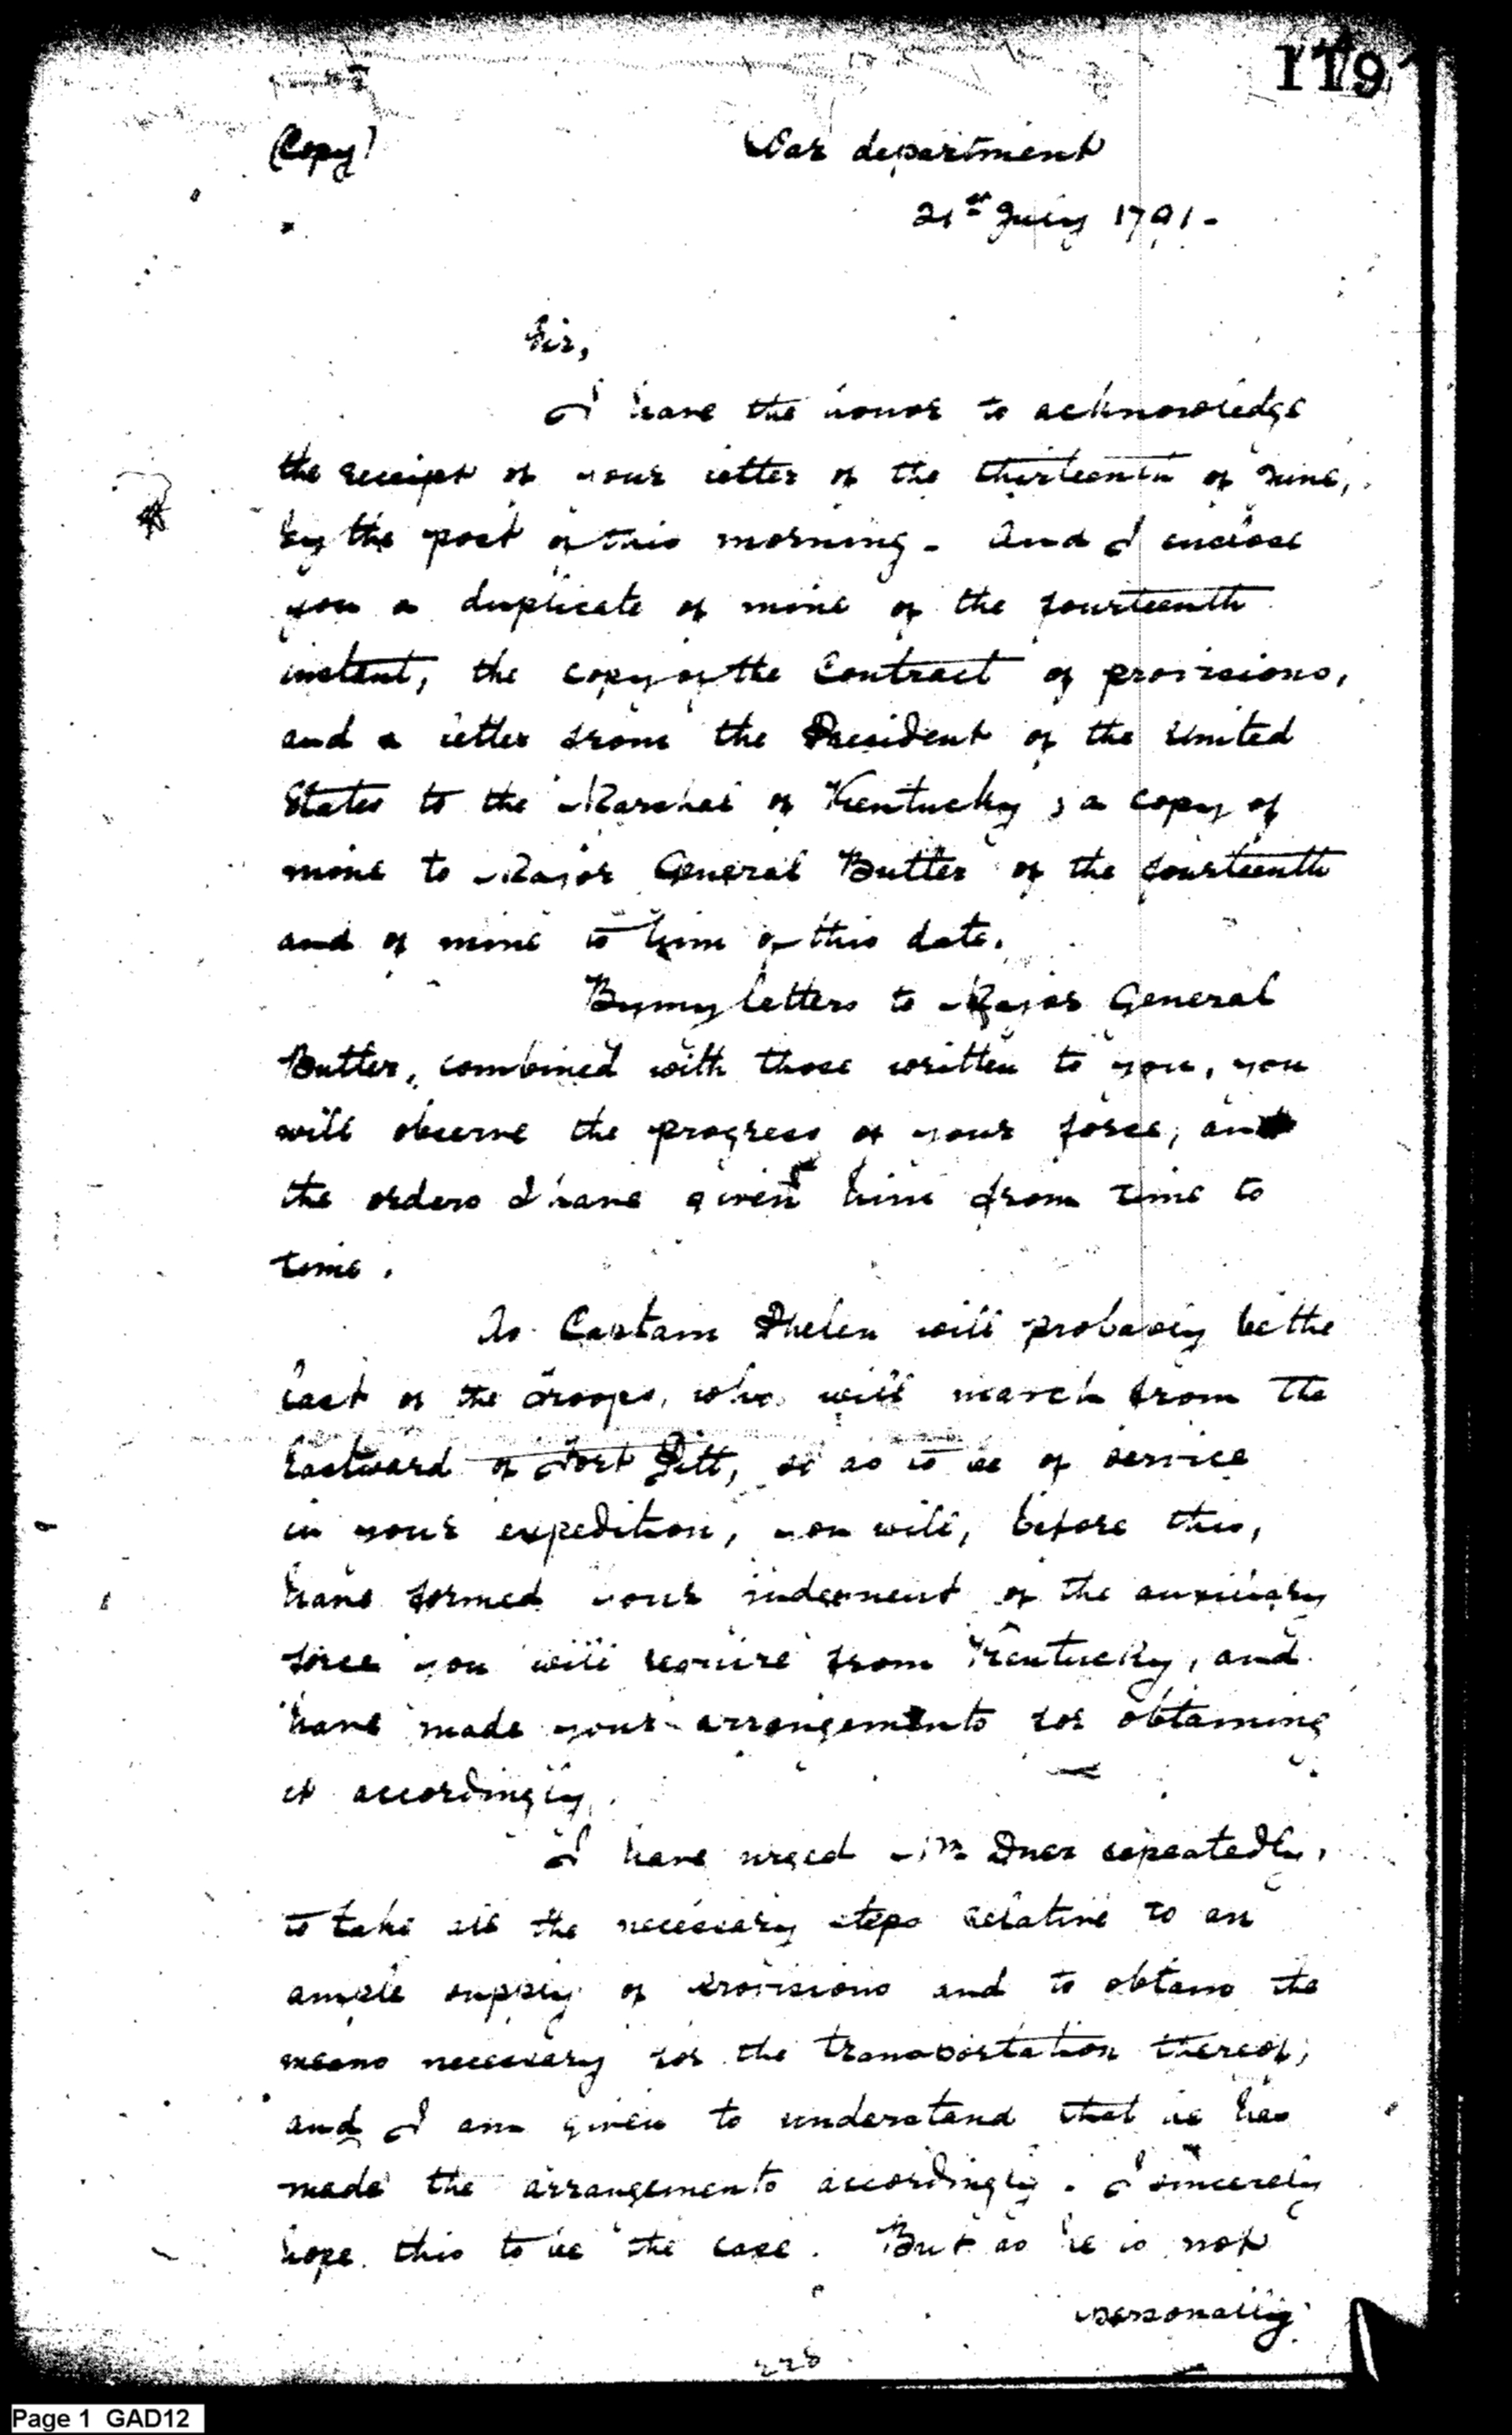 119
(Copy)
War department
21st July 1791.
Sir,
I have the honor to acknowledge
the receipt of your letter of the thirteenth of June,
by the post of this morning. And I enclose
you a duplicate of mine of the fourteenth
instant, the copy of the Contract of provisions,
and a letter from the President of the United
States to the Marshal of Kentucky; a copy of
mine to Major General Butler of the fourteenth
and of mine to him of this date.
By my letters to Major General
Butler, combined with those written to you, you
will observe the progress of your force, and
the orders I have given him from time to
time.
As Captain Phelen will probably be the
last of the troops, who will march from the
Eastward of Fort Pitt, so as to be of service
in your expedition, you will, before this,
have formed your judgement of the auxiliary
force you will require from Kentucky, and
have made your arrangements for obtaining
it accordingly.
I have urged Mr Duer repeatedly,
to take all the necessary steps relative to an
ample supply of provisions and to obtain the
means necessary for the transportation thereof,
and I am given to understand that he has
made the arrangements accordingly. I sincerely
hope this to be the case. But as he is not
personally
228
Page 1 GAD12